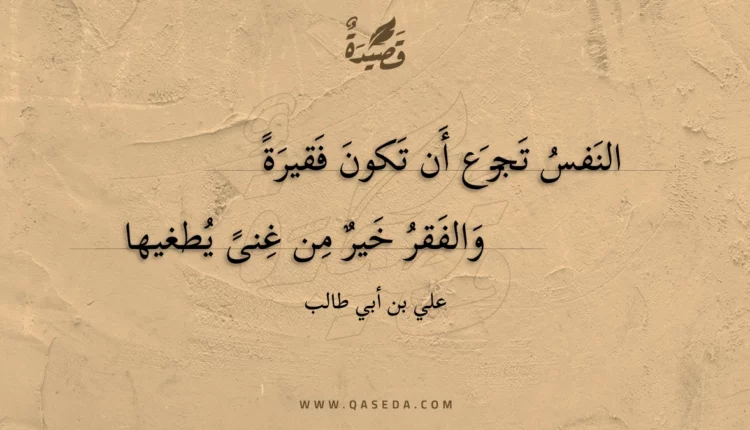 قَصِيْدَةٌ
النَفسُ تَجزَع أَن تَكونَ فَقيرَةً
وَالفَقرُ خَيرٌ مِن غِنىً يُطغيها
علي بن أبي طالب
WWW.QASEDA.COM